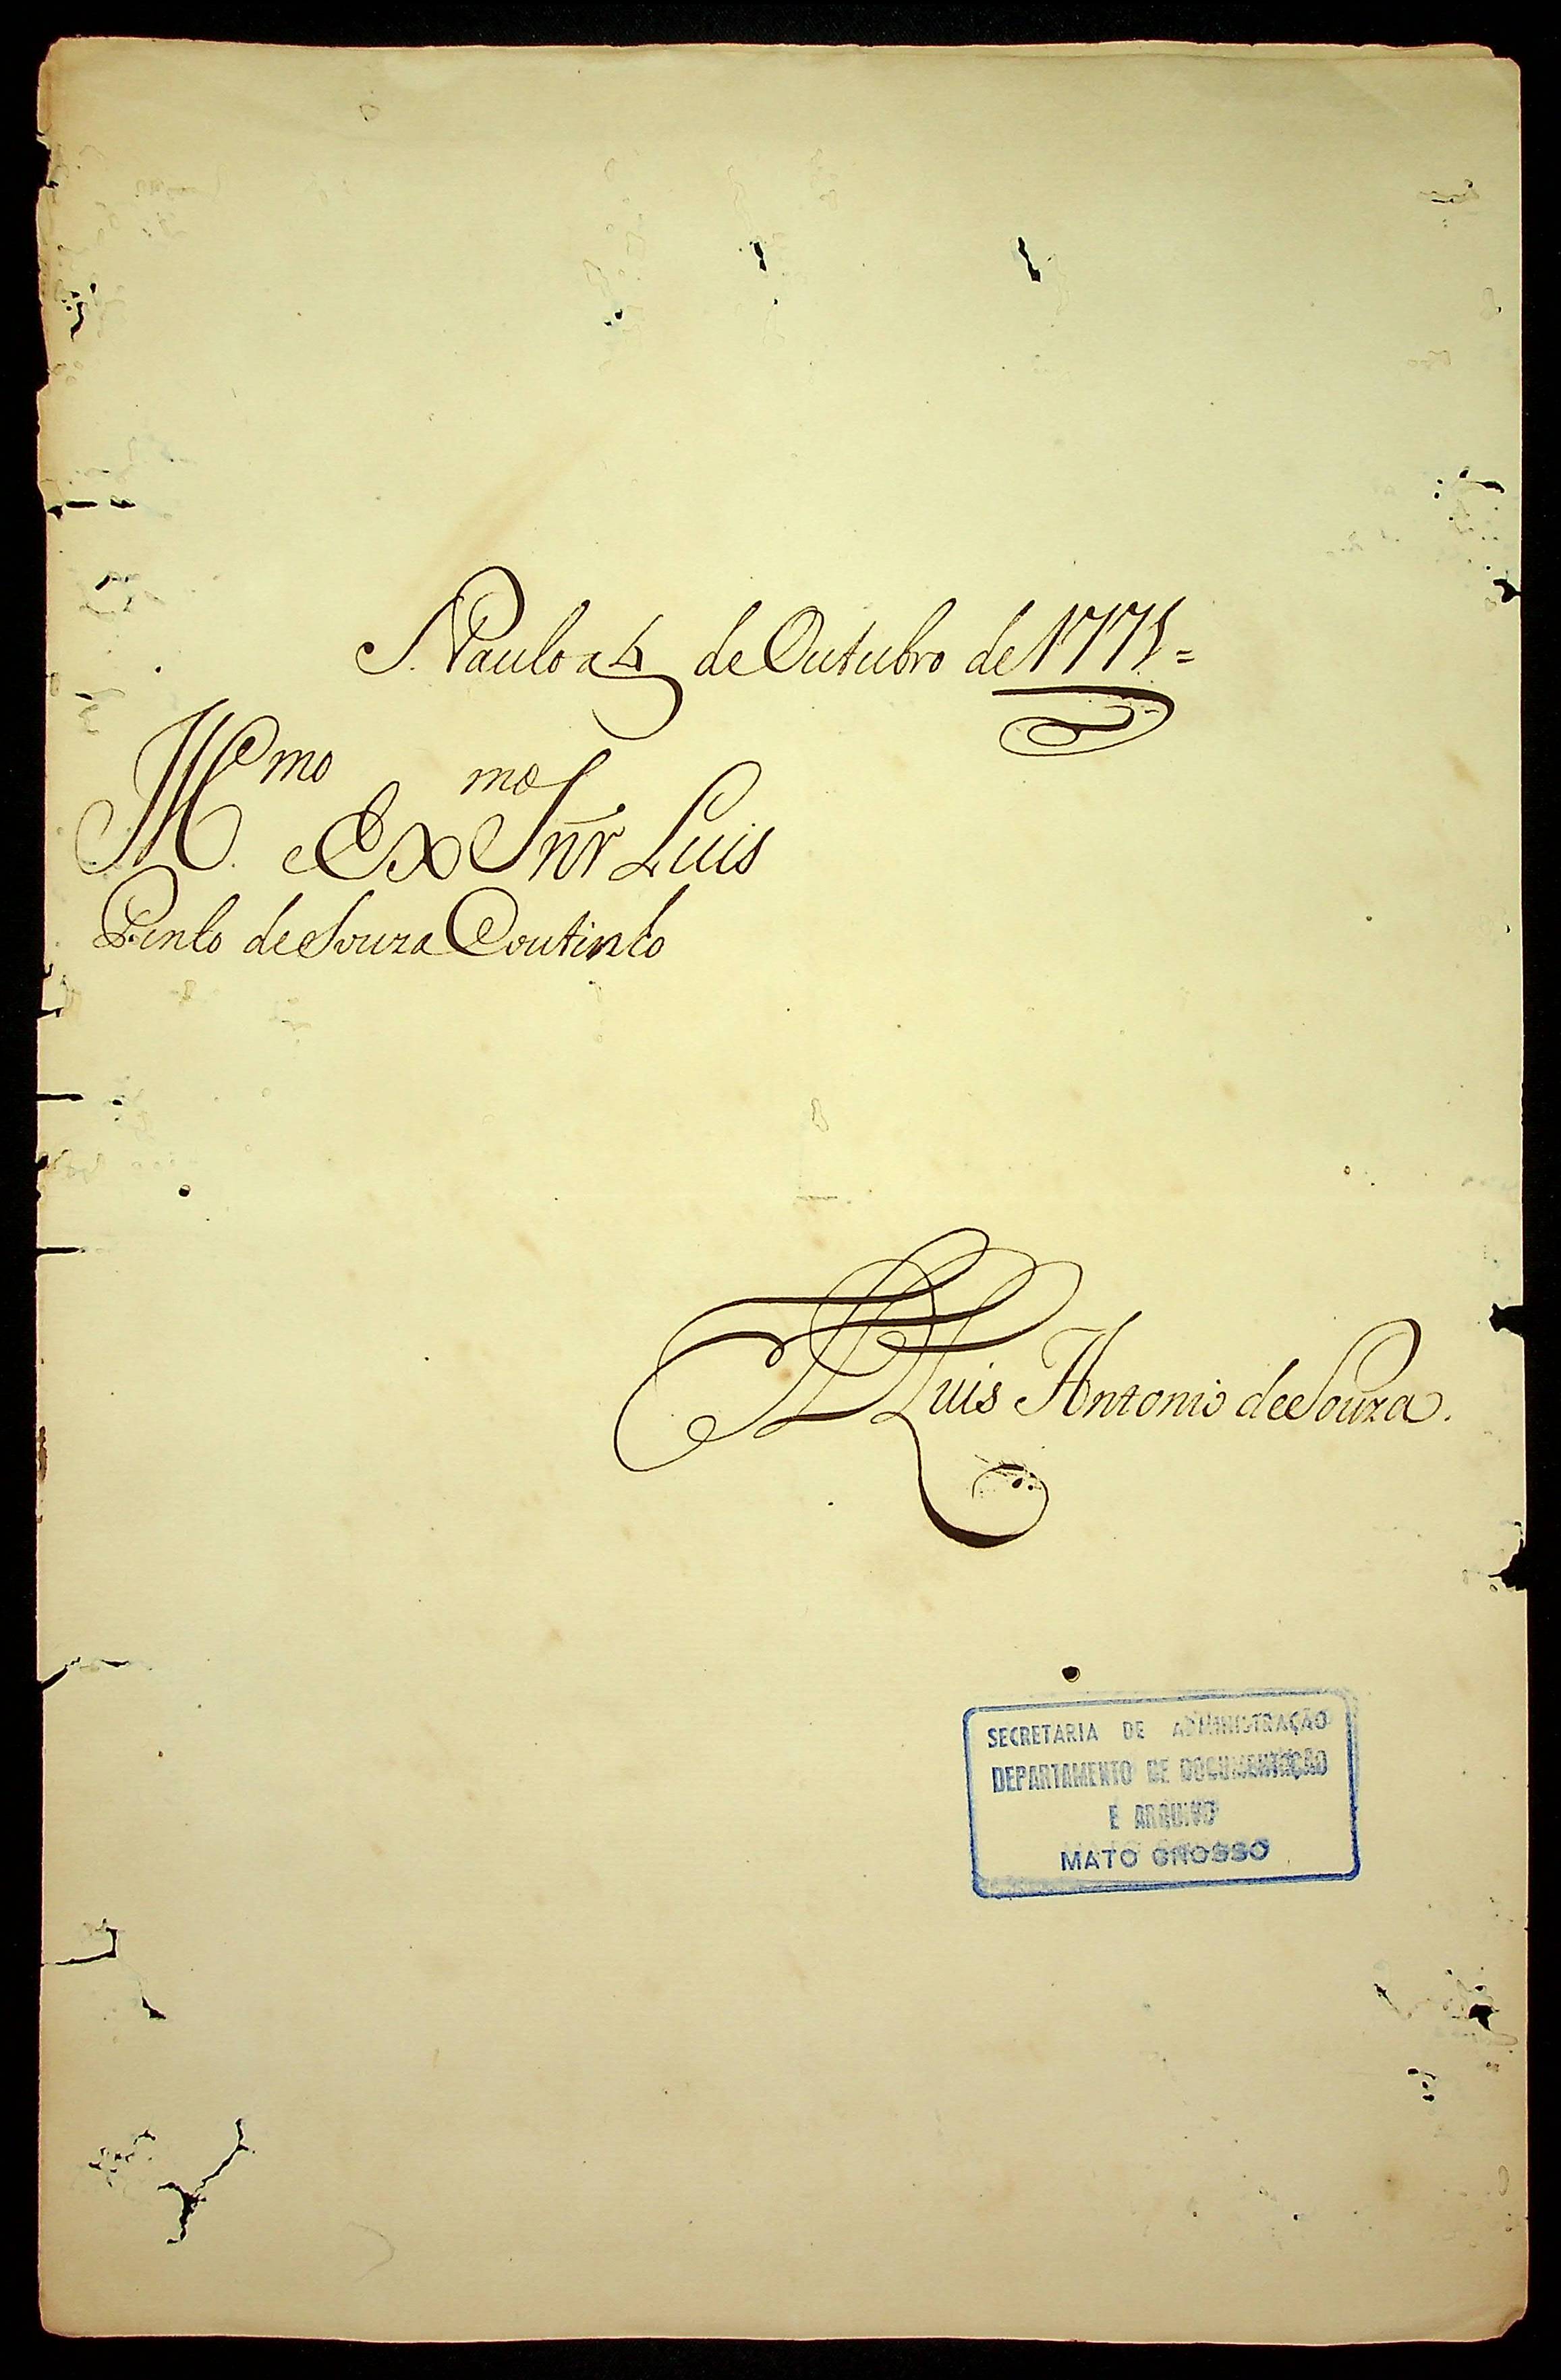 S. Paulo a 4 de Outubro de 1771=
Illmo Exmo Snr Luis
Pinto de Souza Coutinho
D. Luis Antonio de Souza.
SECRETARIA DE ADMINISTRAÇÃO
DEPARTAMENTO DE DOCUMENTAÇÃO
E ARQUIVO
MATO GROSSO